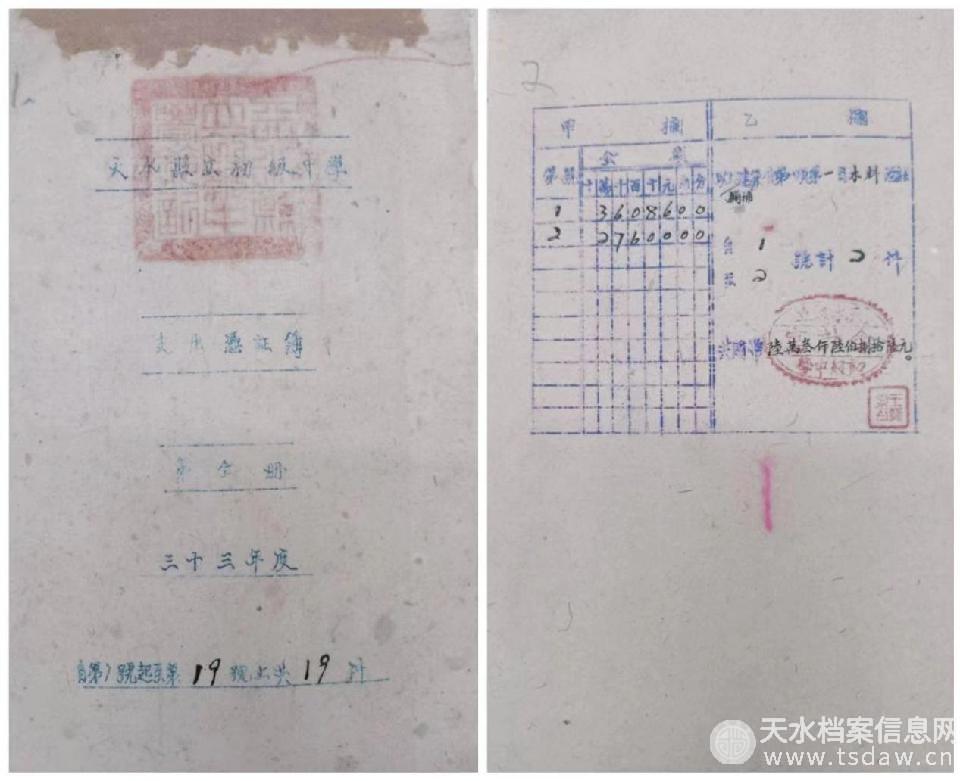 天水縣立初級中學
支出憑証簿
第全册
三十三年度
自第1號起至第19號止共19件
2
甲 欄 乙 欄
號數 金 額
十萬千百十元角分
第一目木料
1 3608600
2 2760000
自 1
至 2 號計 2 件
共計洋陸萬叁仟陸佰捌拾陸元
初級中學
天水档案信息网
www.tsdaw.cn